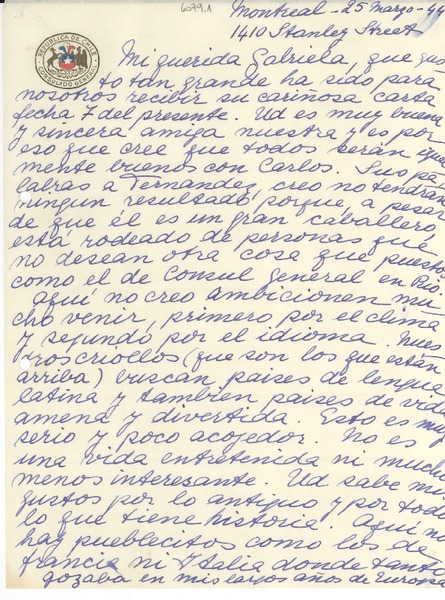 6079.1
Montreal - 25 Marzo - 44
1410 Stanley Street
REPUBLICA DE CHILE
CONSULADO GENERAL
Mi querida Gabriela, que gus
to tan grande ha sido para
nosotros recibir su cariñosa carta
fecha 7 del presente. Ud es muy buena
y sincera amiga nuestra y es por
eso que cree que todos serán igual
mente buenos con Carlos. Sus pa
labras a Fernandez, creo no tendran
ningun resultado porque, a pesar
de que él es un gran caballero,
está rodeado de personas que
no desean otra cosa que puestos
como el de Consul General en Rio
Aquí no creo ambicionen mu
cho venir, primero por el clima
y segundo por el idioma. Nues
tros criollos (que son los que están
arriba) buscan paises de lengua
latina y tambien paises de vida
amena y divertida. Esto es muy
serio y poco acojedor. No es
una vida entretenida ni mucho
menos interesante. Ud sabe mis
gustos por lo antiguo y por todo
lo que tiene historia. Aquí no
hay pueblecitos como los de
francia ni Italia donde tanto
gozaba en mis largos años de Europa